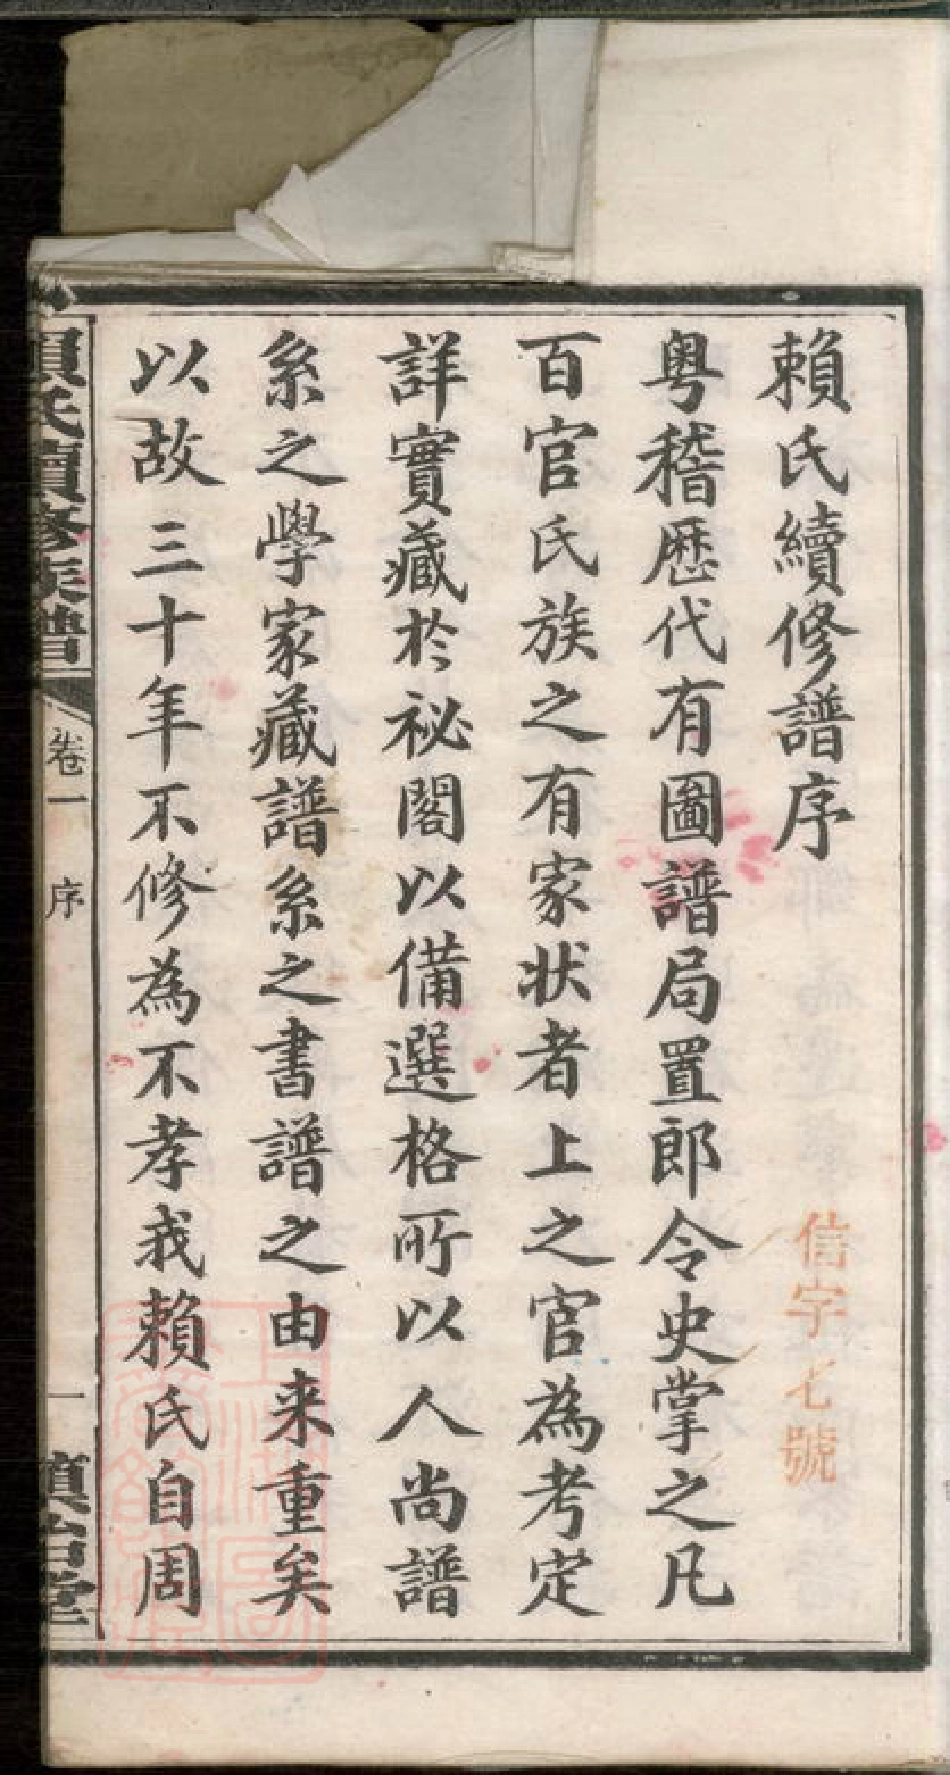 賴氏續修譜序
信字七號
粤稽歴代有圖譜局置郎令史掌之凡
百官氏族之有家狀者上之官為考定
詳實藏於祕閣以備選格所以人尚譜
系之學家藏譜系之書譜之由来重矣
以故三十年不修為不孝我賴氏自周
賴氏續修族譜
卷一
序
一